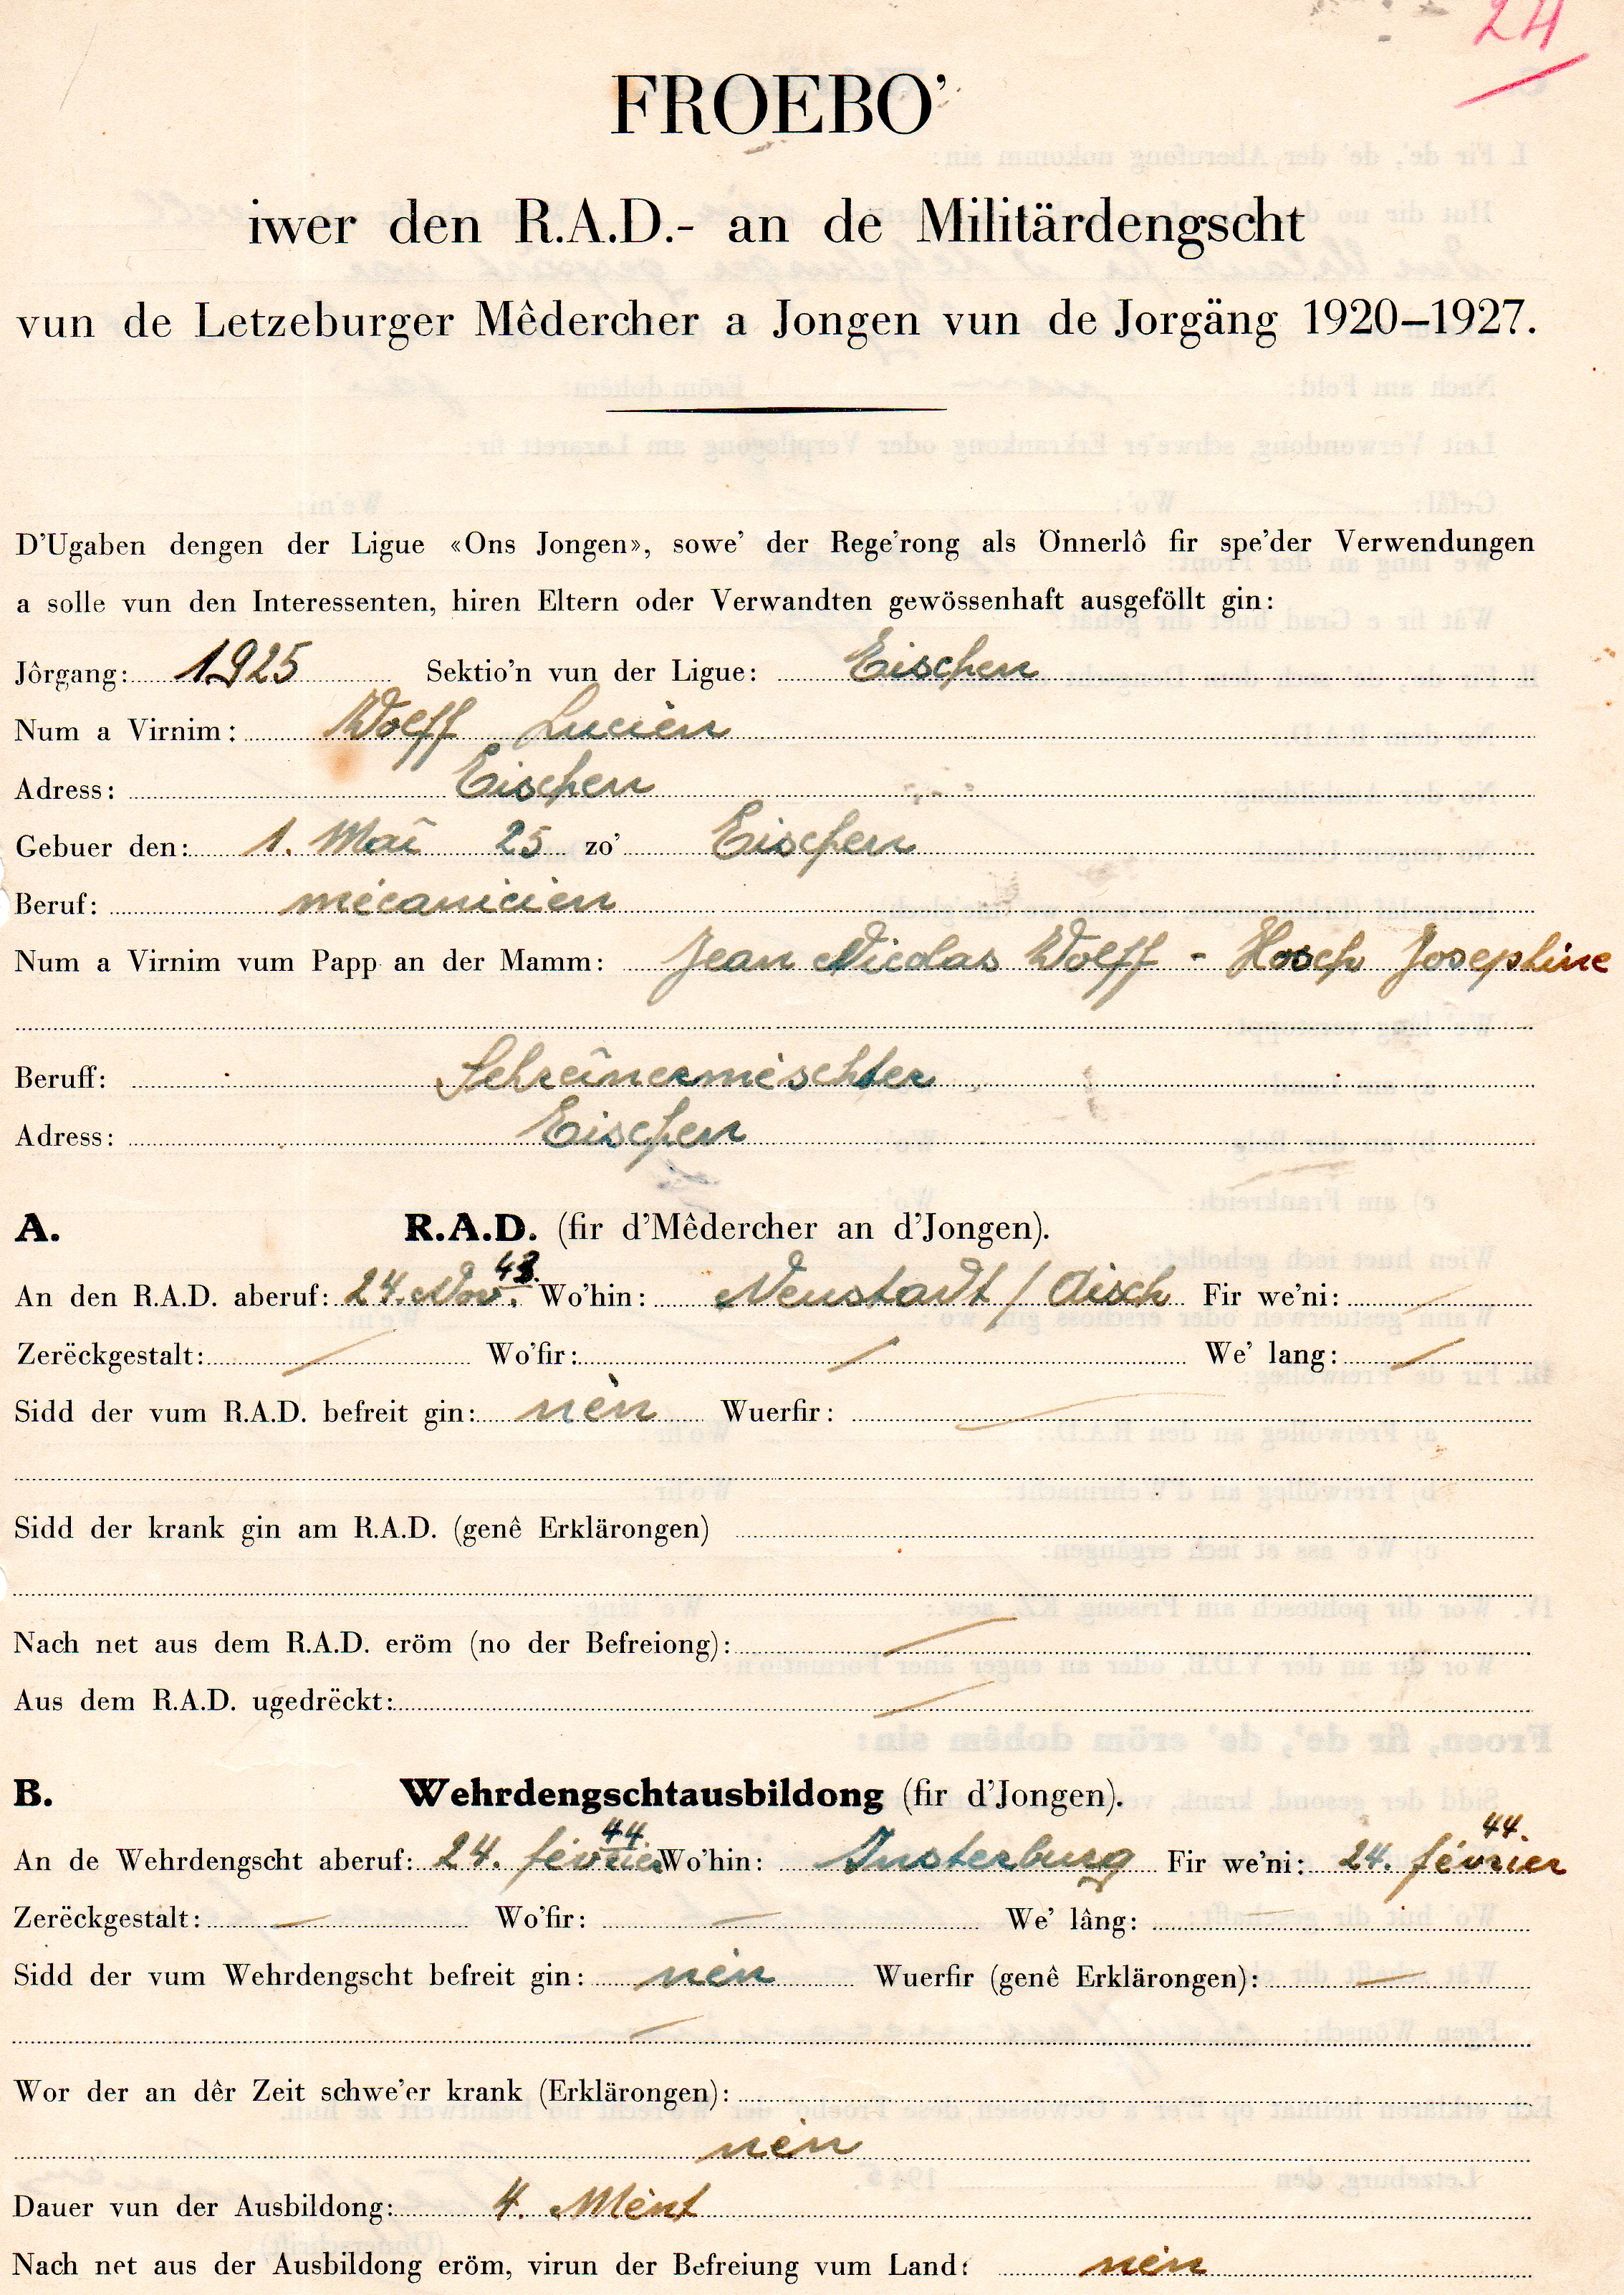 24
FROEBO'
iwer den R.A.D.- an de Militärdengscht
vun de Letzeburger Mêdercher a Jongen vun de Jorgäng 1920–1927.
D'Ugaben dengen der Ligue «Ons Jongen», sowe' der Rege'rong als Önnerlô fir spe'der Verwendungen
a solle vun den Interessenten, hiren Eltern oder Verwandten gewössenhaft ausgeföllt gin:
Jôrgang: 1925 Sektio'n vun der Ligue: Eischen
Num a Virnim: Wolff Lucien
Adress: Eischen
Gebuer den: 1. Mai 25 zo' Eischen
Beruf: mécanicien
Num a Virnim vum Papp an der Mamm: Jean Nicolas Wolff - Hosch Josephine
Beruff: Schreinermèschter
Adress: Eischen
A. R.A.D. (fir d'Mêdercher an d'Jongen).
An den R.A.D. aberuf: 24. Nov. 43. Wo'hin: Neustadt / Aisch Fir we'ni: /
Zerëckgestalt: / Wo'fir: / We' lang: /
Sidd der vum R.A.D. befreit gin: nèn Wuerfir: —
Sidd der krank gin am R.A.D. (genê Erklärongen)
Nach net aus dem R.A.D. eröm (no der Befreiong): /
Aus dem R.A.D. ugedrëckt: /
B. Wehrdengschtausbildong (fir d'Jongen).
An de Wehrdengscht aberuf: 24. février 44. Wo'hin: Insterburg Fir we'ni: 24. février 44.
Zerëckgestalt: — Wo'fir: — We' lâng: —
Sidd der vum Wehrdengscht befreit gin: nèn Wuerfir (genê Erklärongen): —
—
Wor der an dêr Zeit schwe'er krank (Erklärongen):
nèn
Dauer vun der Ausbildong: 4. Mènt
Nach net aus der Ausbildong eröm, virun der Befreiung vum Land: nèn